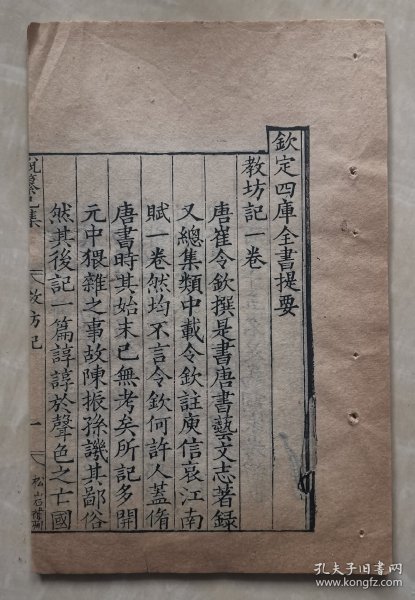 欽定四庫全書提要
教坊記一卷
唐崔令欽撰是書唐書藝文志著錄
又總集類中載令欽註庾信哀江南
賦一卷然均不言令欽何許人蓋脩
唐書時其始末已無考矣所記多開
元中猥雜之事故陳振孫譏其鄙俗
然其後記一篇諄諄於聲色之亡國
教坊記
一
孔夫子旧书网
www.kongfz.com